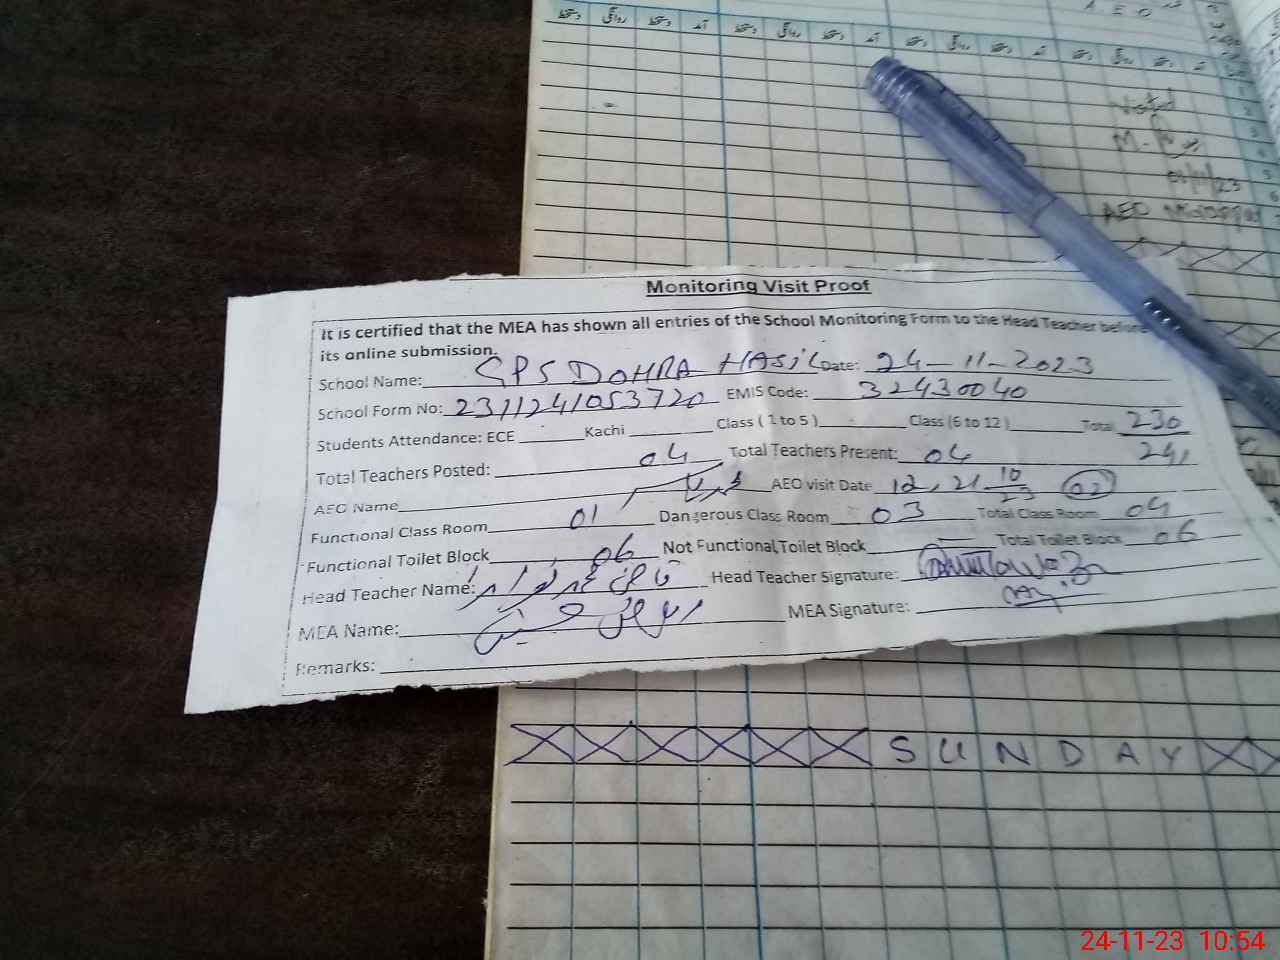 دستخط روانگی دستخط آمد دستخط روانگی دستخط آمد دستخط روانگی دستخط آمد دستخط روانگی دستخط
A E O
Visited
AEO
Monitoring Visit Proof
It is certified that the MEA has shown all entries of the School Monitoring Form to the Head Teacher before
its online submission.
School Name: GPS DOHRA HASIL Date: 24-11-2023
School Form No: 2311241053720 EMIS Code: 32430040
Students Attendance: ECE Kachi Class ( 1 to 5 ) Class (6 to 12 ) Total 230
241
Total Teachers Posted: 04 Total Teachers Present: 04
AEO Name AEO visit Date 12, 21 10 23 02
Functional Class Room 01 Dangerous Class Room 03 Total Class Room 04
Functional Toilet Block 06 Not Functional Toilet Block Total Toilet Block 06
Head Teacher Name: Head Teacher Signature:
MEA Name: MEA Signature:
Remarks:
SUNDAY
24-11-23 10:54